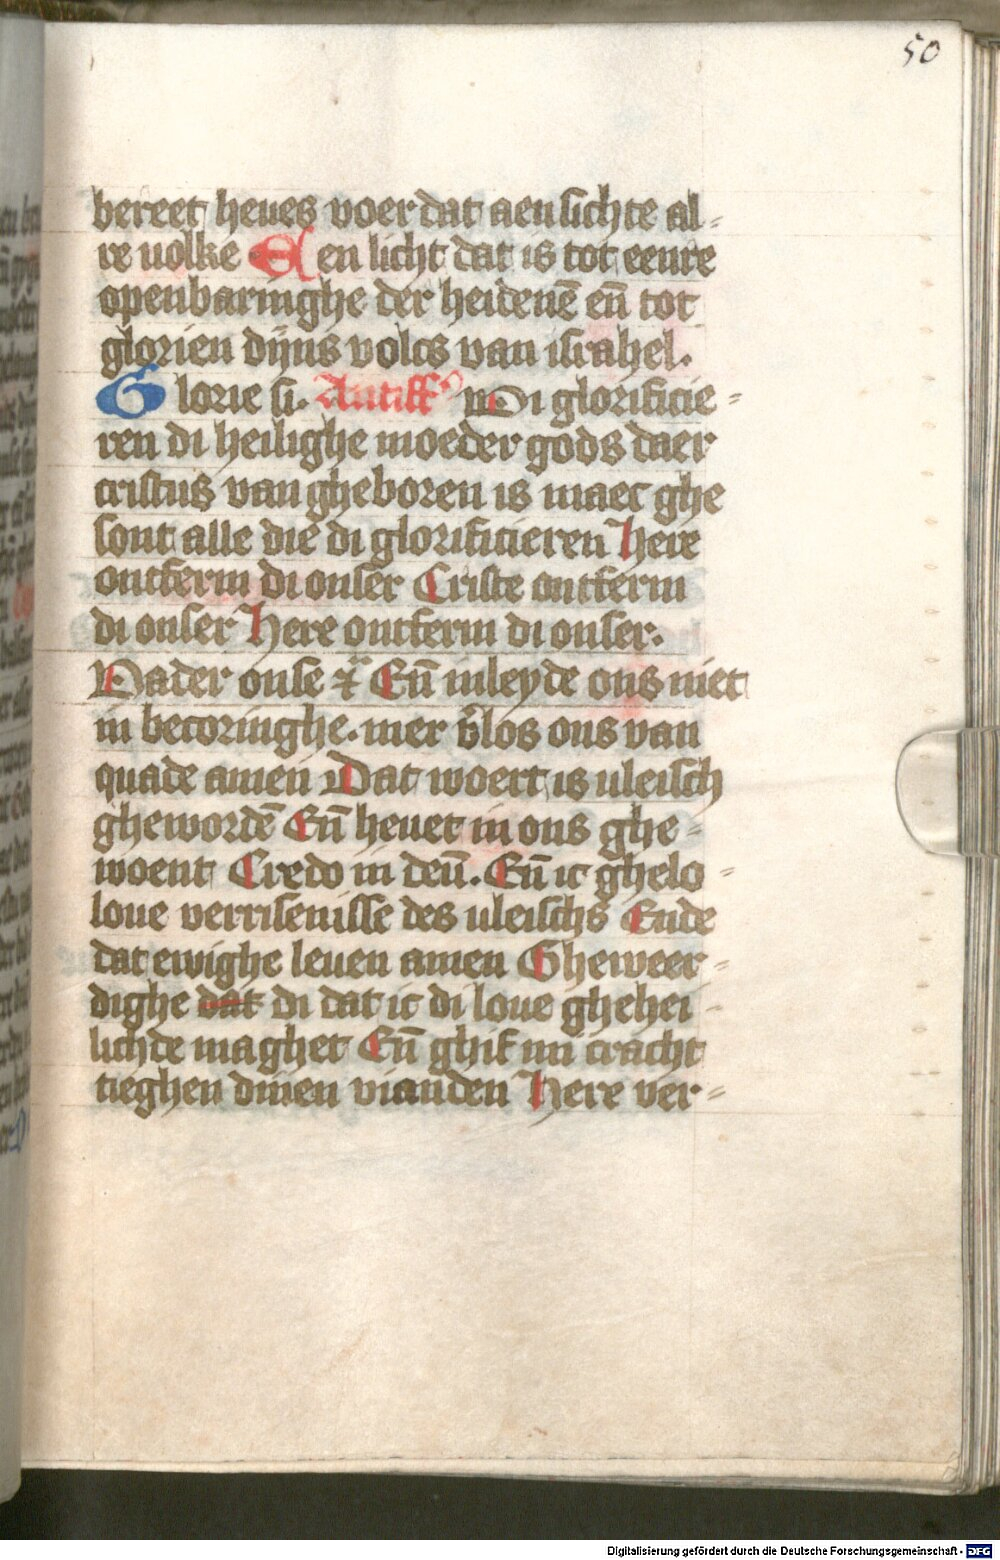 50
bereet heues voer dat aensichte al-
re uolke Een licht dat is tot eenre
openbaringhe der heidenē en̄ tot
glorien dijns volcs van israhel.
Glorie si. Antiff' Wi glorificie-
ren di heilighe moeder gods daer
cristus van gheboren is maec ghe
sont alle die di glorificieren Here
ontferm di onser Criste ontferm
di onser Here ontferm di onser.
Vader onse ⁊c En̄ inleyde ons niet
in becoringhe. mer v̄los ons van
quade amen Dat woert is uleisch
ghewordē En̄ heuet in ons ghe-
woent Credo in deū. En̄ ic ghelo-
loue verrisenisse des uleischs Ende
dat ewighe leuen amen Gheweer-
dighe dat di dat ic di loue ghehei-
lichde maghet En̄ ghif mi cracht
tieghen dinen vianden Here ver-
Digitalisierung gefördert durch die Deutsche Forschungsgemeinschaft - DFG